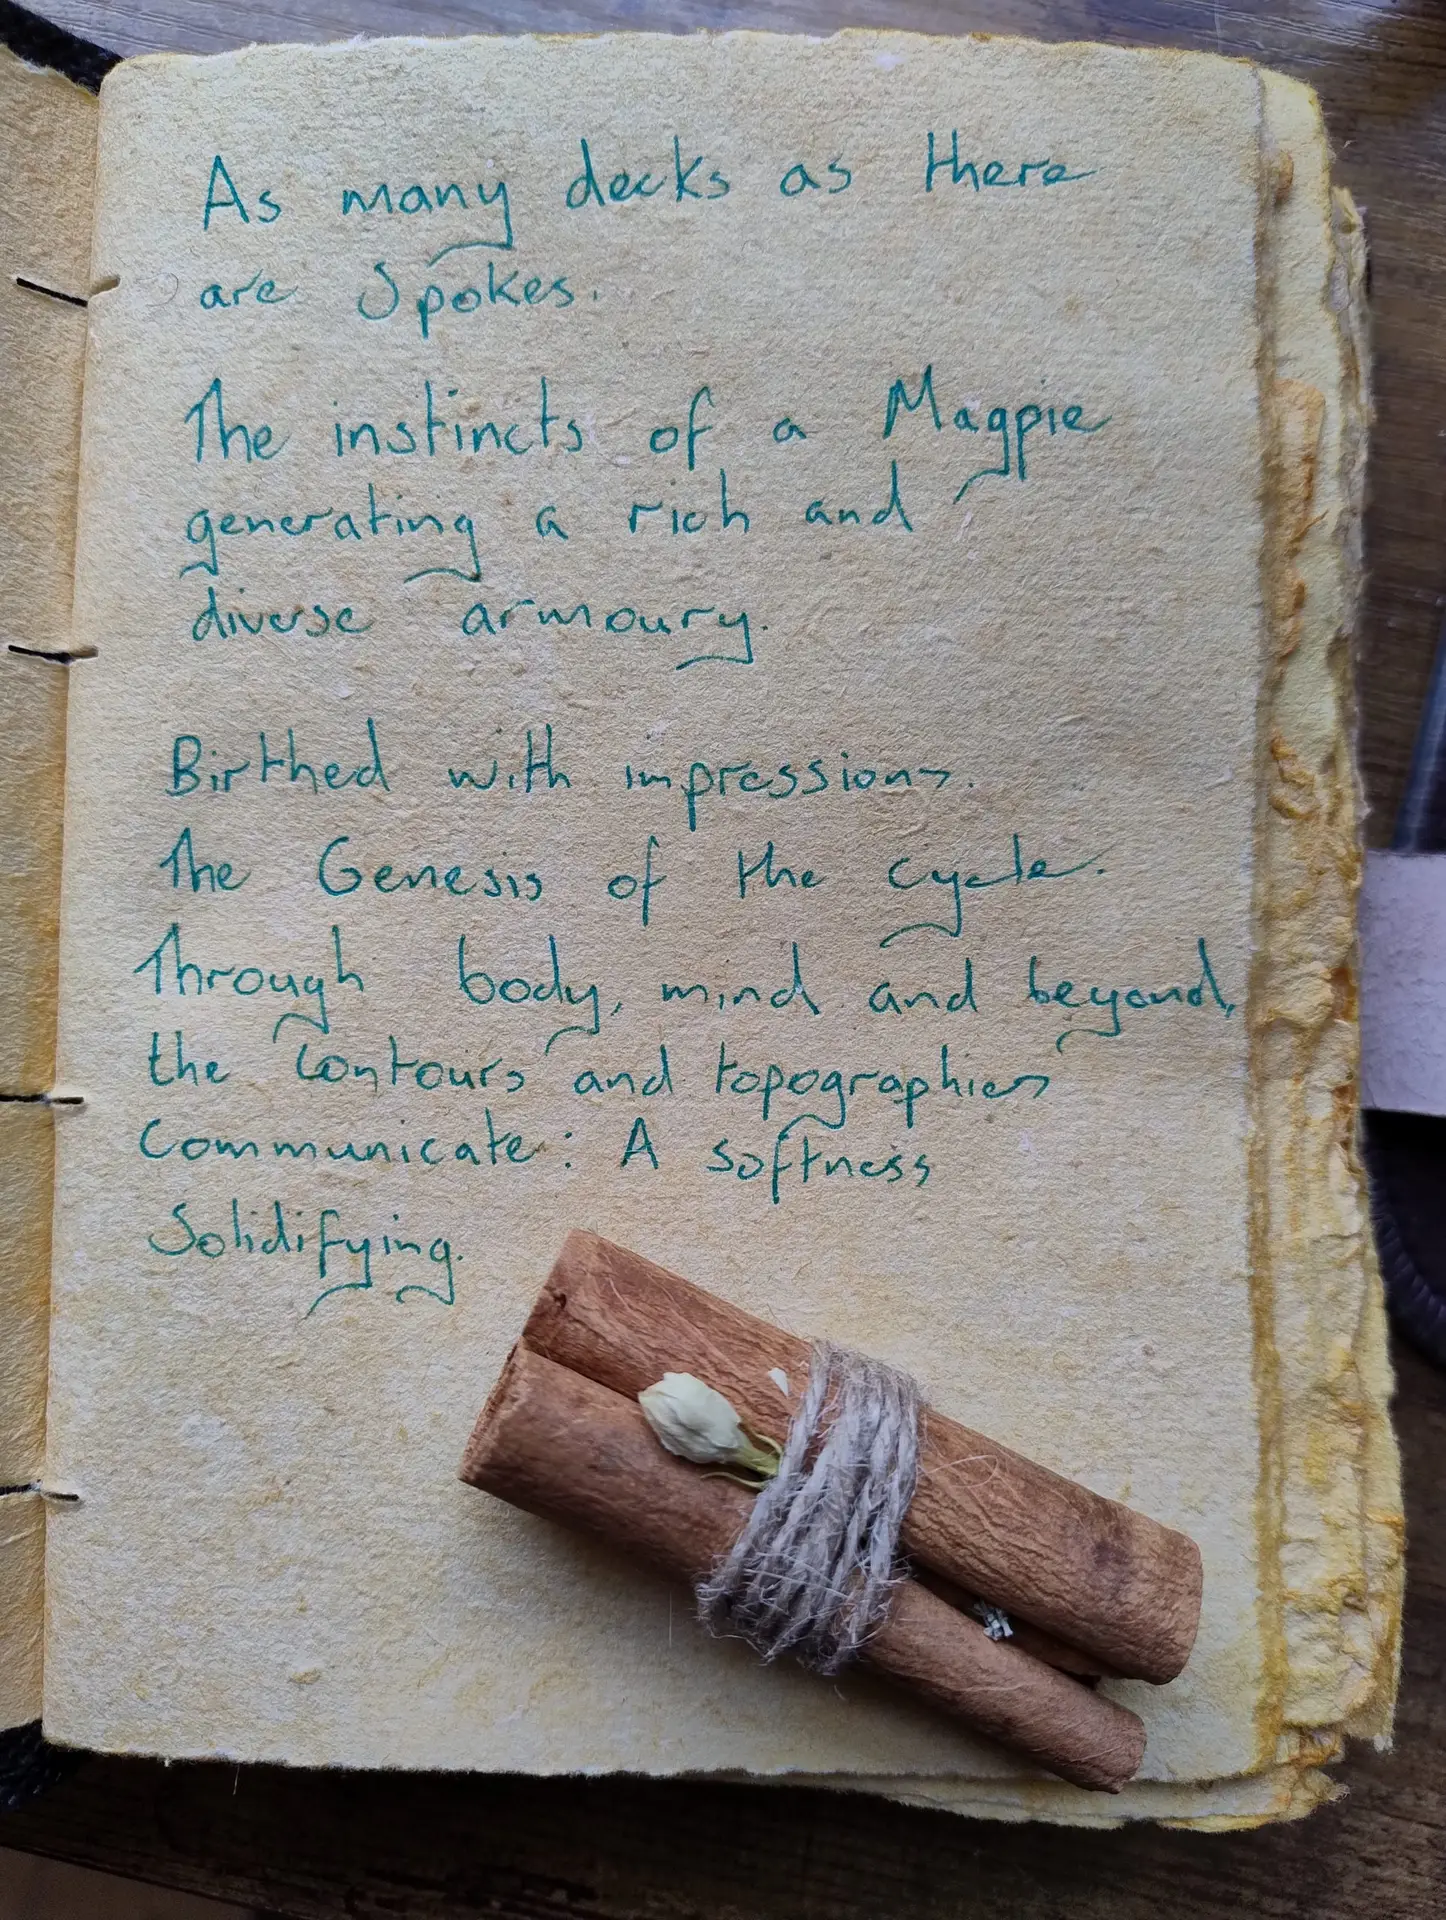 As many decks as there
are Spokes.
The instincts of a Magpie
generating a rich and
diverse armoury.
Birthed with impressions.
The Genesis of the cycle.
Through body, mind and beyond,
the contours and topographies
Communicate: A softness
Solidifying.